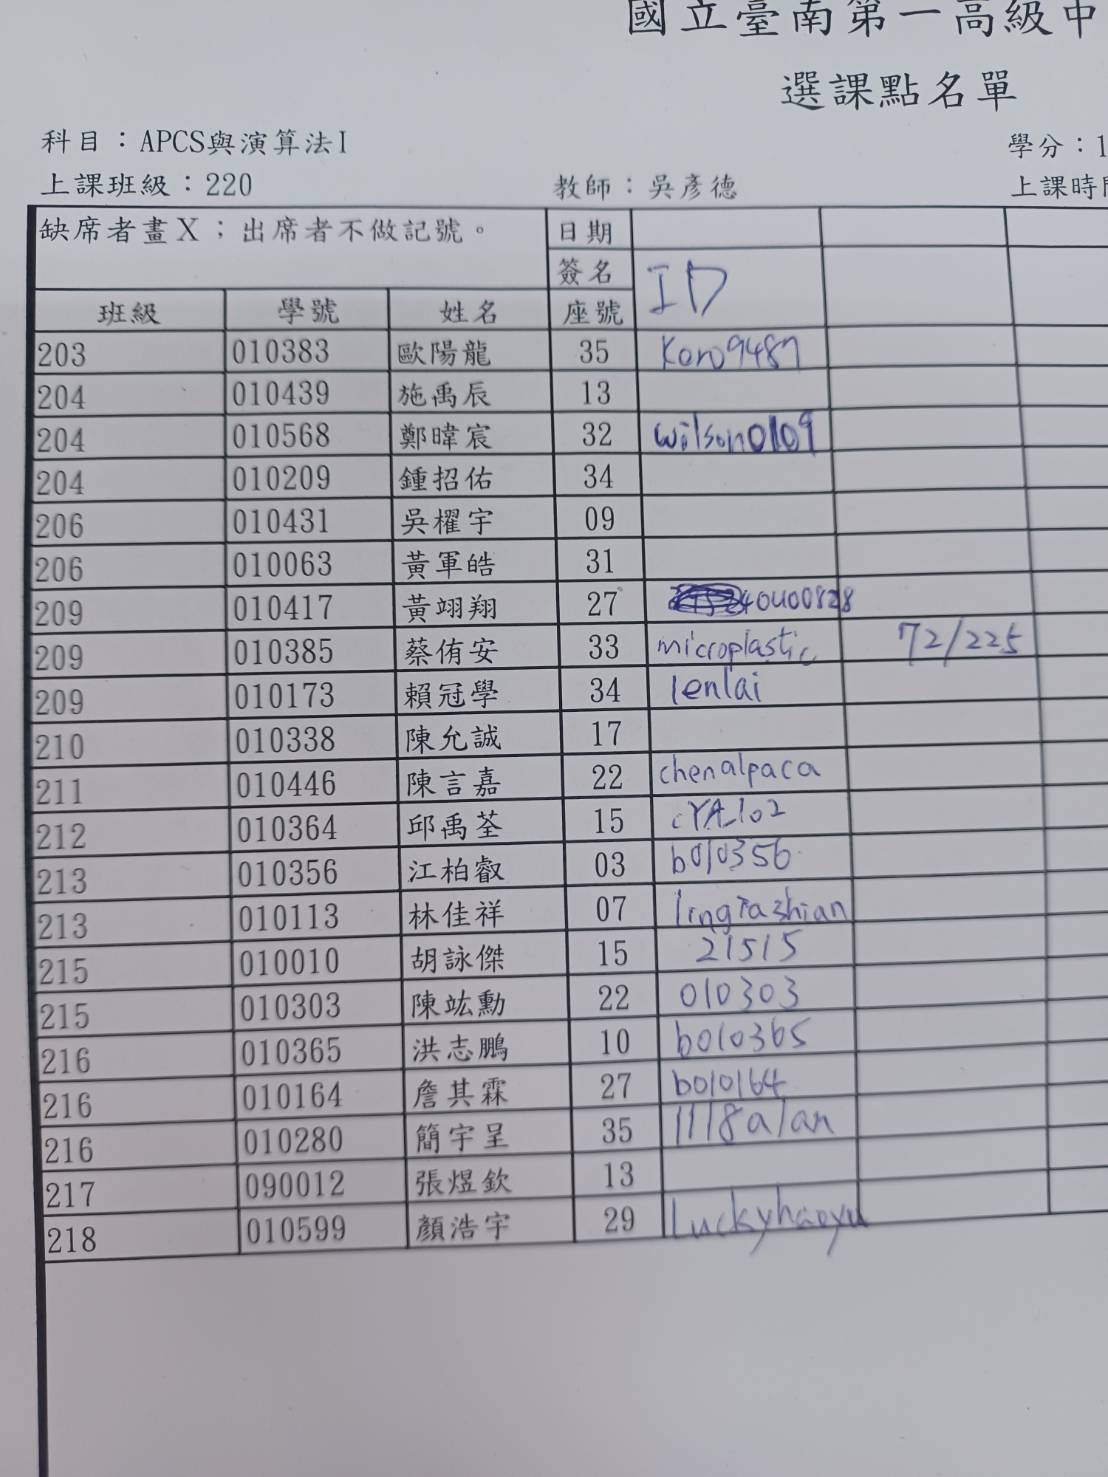 國立臺南第一高級中
選課點名單
科目：APCS與演算法I
學分：1
上課班級：220
教師：吳彥德
上課時間
缺席者畫X；出席者不做記號。
日期
簽名 ID
班級 學號 姓名 座號
203 010383 歐陽龍 35 Koro9487
204 010439 施禹辰 13
204 010568 鄭暐宸 32 wilson0109
204 010209 鍾招佑 34
206 010431 吳櫂宇 09
206 010063 黃軍皓 31
209 010417 黃翊翔 27 40400828
209 010385 蔡侑安 33 microplastic 72/225
209 010173 賴冠學 34 lenlai
210 010338 陳允誠 17
211 010446 陳言嘉 22 chenalpaca
212 010364 邱禹荃 15 cYA102
213 010356 江柏叡 03 b010356
213 010113 林佳祥 07
215 010010 胡詠傑 15 21515
215 010303 陳竑勳 22 010303
216 010365 洪志鵬 10 b010365
216 010164 詹其霖 27 b010164
216 010280 簡宇呈 35 1118alan
217 090012 張煜欽 13
218 010599 顏浩宇 29 Luckyhaoyu